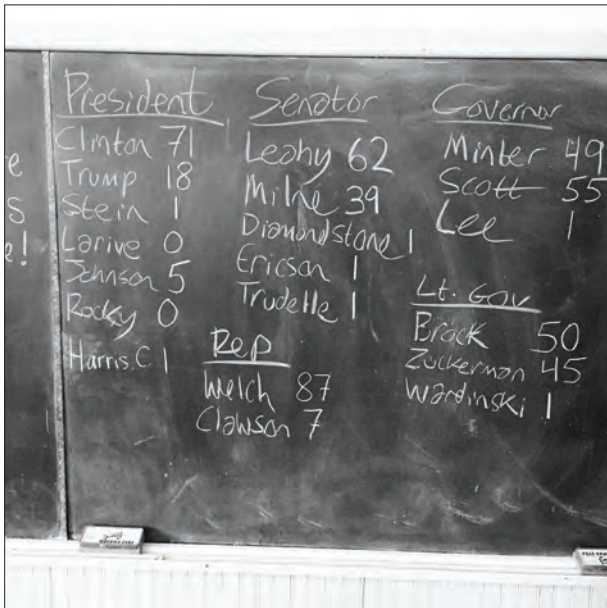 President
Clinton 71
Trump 18
Stein 1
Larive 0
Johnson 5
Rocky 0
Harris.C 1
Senator
Leahy 62
Milne 39
Diamondstone 1
Ericson 1
Trudelle 1
Rep
Welch 87
Clawson 7
Governor
Minter 49
Scott 55
Lee 1
Lt. Gov
Brock 50
Zuckerman 45
Wardinski 1